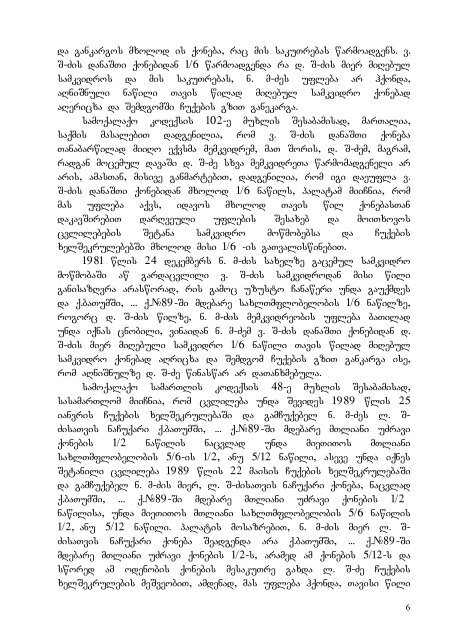 და განკარგოს მხოლოდ ის ქონება, რაც მის საკუთრებას წარმოადგენს. ვ.
შ-ძის დანაშთი ქონებიდან 1/6 წარმოადგენდა რა დ. შ-ძის მიერ მიღებულ
სამკვიდროს და მის საკუთრებას, ნ. მ-ძეს უფლება არ ჰქონდა,
აღნიშნული ნაწილი თავის წილად მიღებულ სამკვიდრო ქონებად
აღერიცხა და შემდგომში ჩუქების გზით განეკარგა.
სამოქალაქო კოდექსის 102-ე მუხლის შესაბამისად, მართალია,
საქმის მასალებით დადგენილია, რომ ვ. შ-ძის დანაშთი ქონება
თანაბარწილად მიიღო ექვსმა მემკვიდრემ, მათ შორის, დ. შ-ძემ, მაგრამ,
რადგან მოცემულ დავაში დ. შ-ძე სხვა მემკვიდრეთა წარმომადგენელი არ
არის, ამასთან, მისივე განმარტებით, დადგენილია, რომ იგი დაეუფლა ვ.
შ-ძის დანაშთი ქონებიდან მხოლოდ 1/6 ნაწილს, პალატამ მიიჩნია, რომ
მას უფლება აქვს, იდავოს მხოლოდ თავის წილ ქონებასთან
დაკავშირებით დარღვეული უფლების შესახებ და მოითხოვოს
ცვლილებების შეტანა სამკვიდრო მოწმობებსა და ჩუქების
ხელშეკრულებებში მხოლოდ მისი 1/6 -ის გათვალისწინებით.
1981 წლის 24 დეკემბერს ნ. მ-ძის სახელზე გაცემულ სამკვიდრო
მოწმობაში აწ გარდაცვლილი ვ. შ-ძის სამკვიდროდან მისი წილი
განისაზღვრა არასწორად, რის გამოც უზუსტო ჩანაწერი უნდა გაუქმდეს
და ქ.ბათუმში, ... ქ.№89-ში მდებარე სახლთმფლობელობის 1/6 ნაწილზე,
როგორც დ. შ-ძის წილზე, ნ. მ-ძის მემკვიდრეობის უფლება ბათილად
უნდა იქნას ცნობილი, ვინაიდან ნ. მ-ძემ ვ. შ-ძის დანაშთი ქონებიდან დ.
შ-ძის მიერ მიღებული სამკვიდრო 1/6 ნაწილი თავის წილად მიღებულ
სამკვიდრო ქონებად აღრიცხა და შემდგომ ჩუქების გზით განკარგა ისე,
რომ აღნიშნულზე დ. შ-ძე წინასწარ არ დათანხმებულა.
სამოქალაქო სამართლის კოდექსის 48-ე მუხლის შესაბამისად,
სასამართლომ მიიჩნია, რომ ცვლილება უნდა შევიდეს 1989 წლის 25
იანვრის ჩუქების ხელშეკრულებაში და გამჩუქებელ ნ. მ-ძეს ლ. შ-
ძისათვის ნაჩუქარი ქ.ბათუმში, ... ქ.№89-ში მდებარე მთლიანი უძრავი
ქონების 1/2 ნაწილის ნაცვლად უნდა მიეთითოს მთლიანი
სახლთმფლობელობის 5/6-ის 1/2, ანუ 5/12 ნაწილი, ასევე უნდა იქნეს
შეტანილი ცვლილება 1989 წლის 22 მაისის ჩუქების ხელშეკრულებაში
და გამჩუქებელ ნ. მ-ძის მიერ, ლ. შ-ძისათვის ნაჩუქარი ქონება, ნაცვლად
ქ.ბათუმში, ... ქ.№89-ში მდებარე მთლიანი უძრავი ქონების 1/2
ნაწილისა, უნდა მიეთითოს მთლიანი სახლთმფლობელობის 5/6 ნაწილის
1/2, ანუ 5/12 ნაწილი. პალატის მოსაზრებით, ნ. მ-ძის მიერ ლ. შ-
ძისათვის ნაჩუქარი ქონება შეადგენდა არა ქ.ბათუმში, ... ქ.№89-ში
მდებარე მთლიანი უძრავი ქონების 1/2-ს, არამედ ამ ქონების 5/12-ს და
სწორედ ამ ოდენობის ქონების მესაკუთრე გახდა ლ. შ-ძე ჩუქების
ხელშეკრულების მეშვეობით, ამდენად, მას უფლება ჰქონდა, თავისი წილი
6